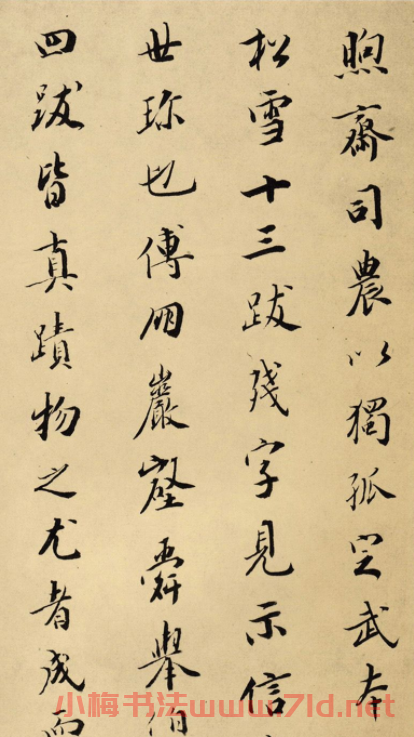 煦齋司農以獨孤定武本
松雪十三跋殘字見示信
世珎也傅朋巖壑舉伯
四跋皆真蹟物之尤者成而
小梅书法www7ld.net